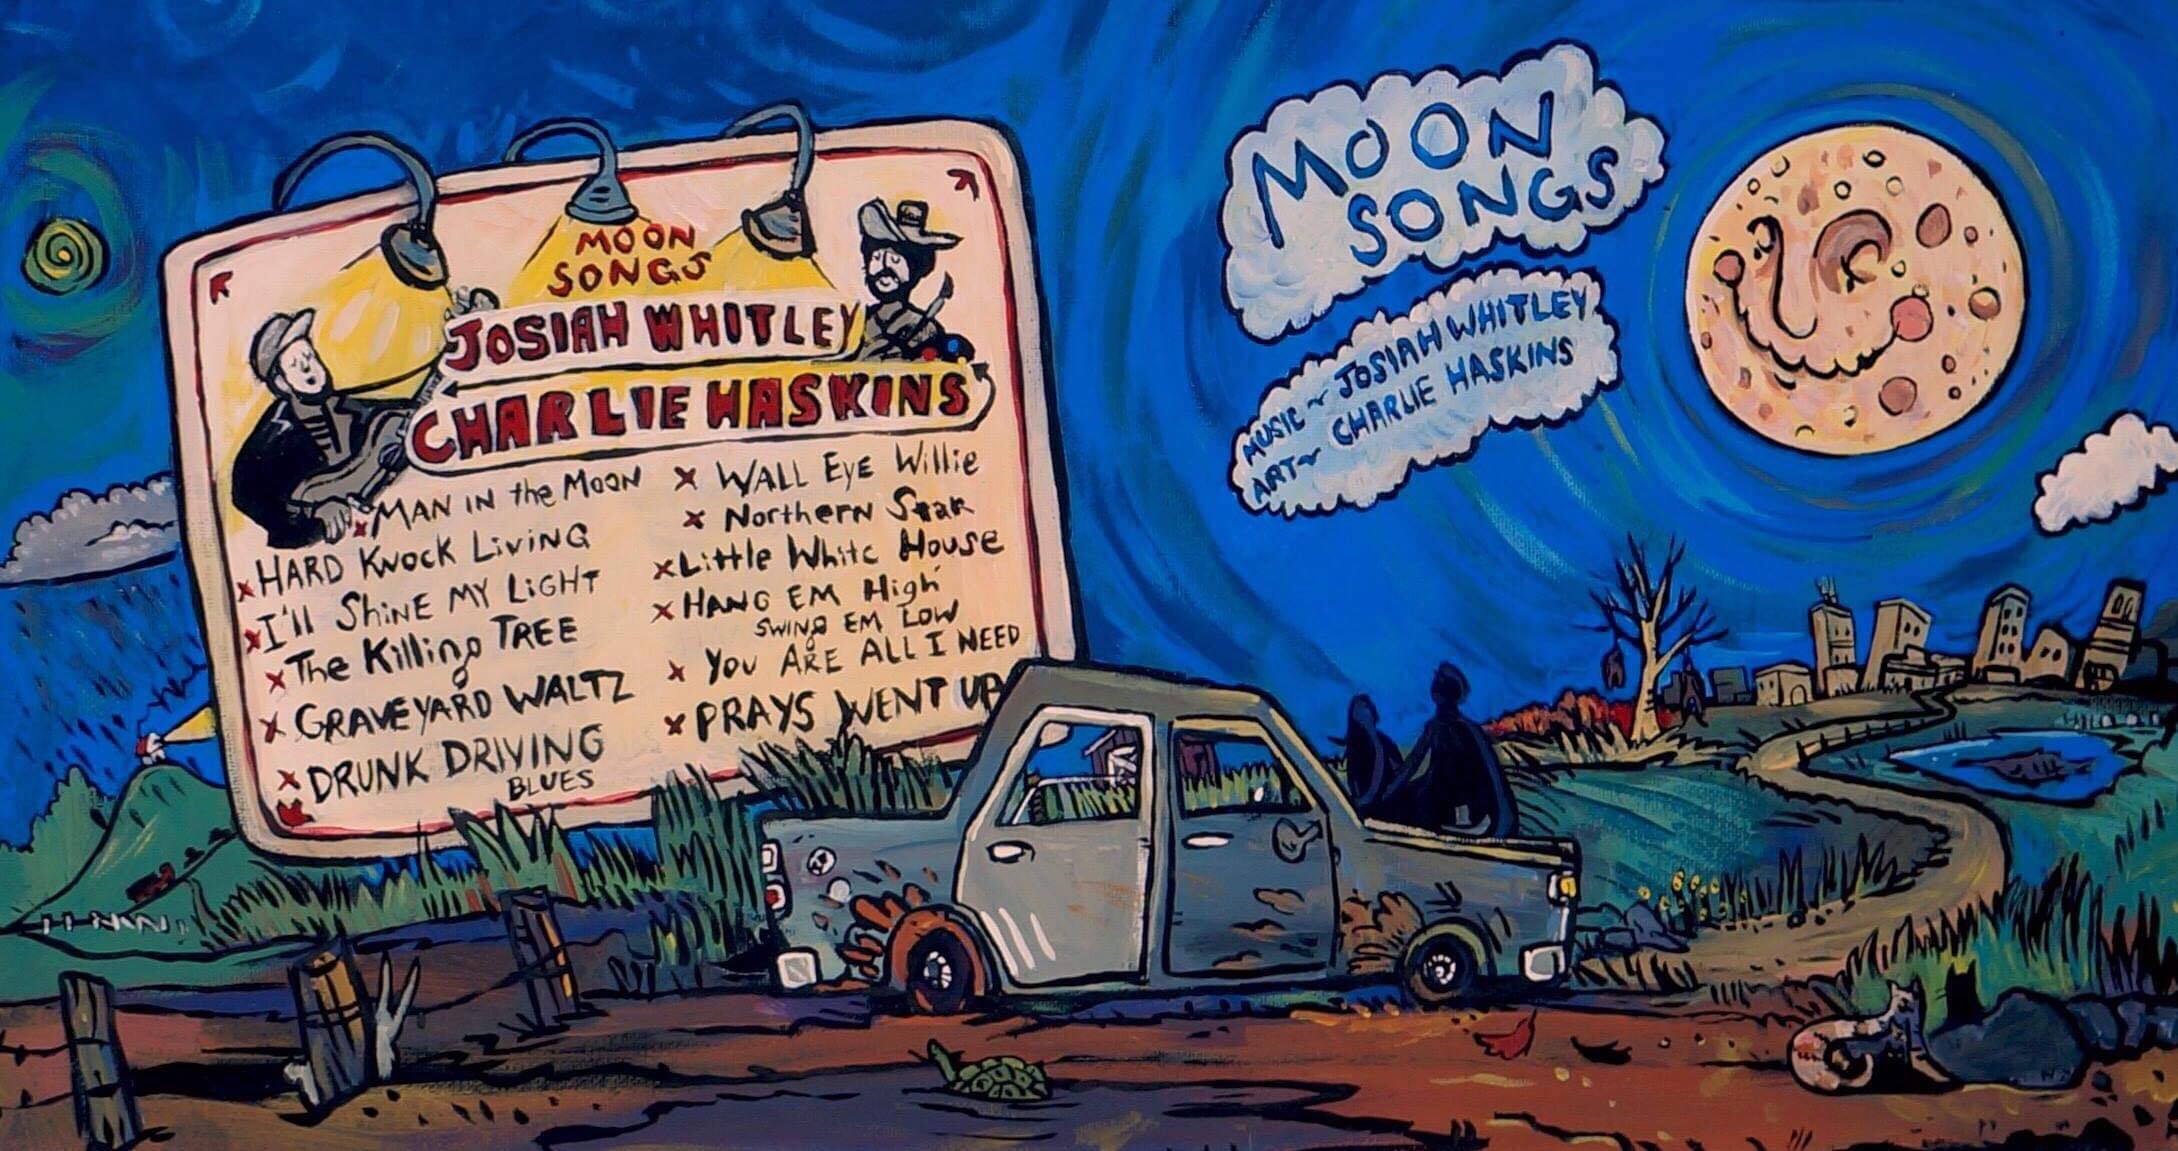 MOON
SONGS
JOSIAH WHITLEY
CHARLIE HASKINS
x MAN IN the MOON
x HARD KNOCK LIVING
x I'll SHINE MY LIGHT
x The Killing TREE
x GRAVEYARD WALTZ
x DRUNK DRIVING
BLUES
x WALL EYE Willie
x Northern Star
x Little White House
x HANG EM High
SWING EM LOW
x YOU ARE ALL I NEED
x PRAYS WENT UP
MOON
SONGS
MUSIC ~ JOSIAH WHITLEY
ART ~ CHARLIE HASKINS